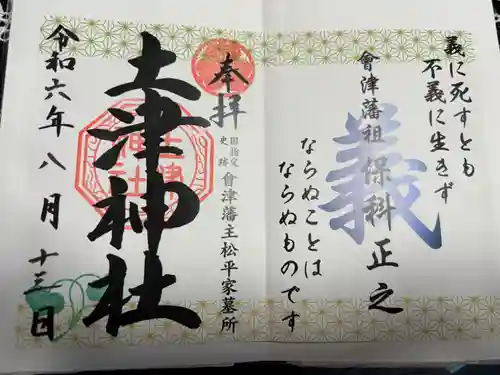 義に死すとも
不義に生きず
會津藩祖 保科正之
義
ならぬことは
ならぬものです
奉拝
国指定
史跡
會津藩主松平家墓所
土津神社
令和六年八月十三日